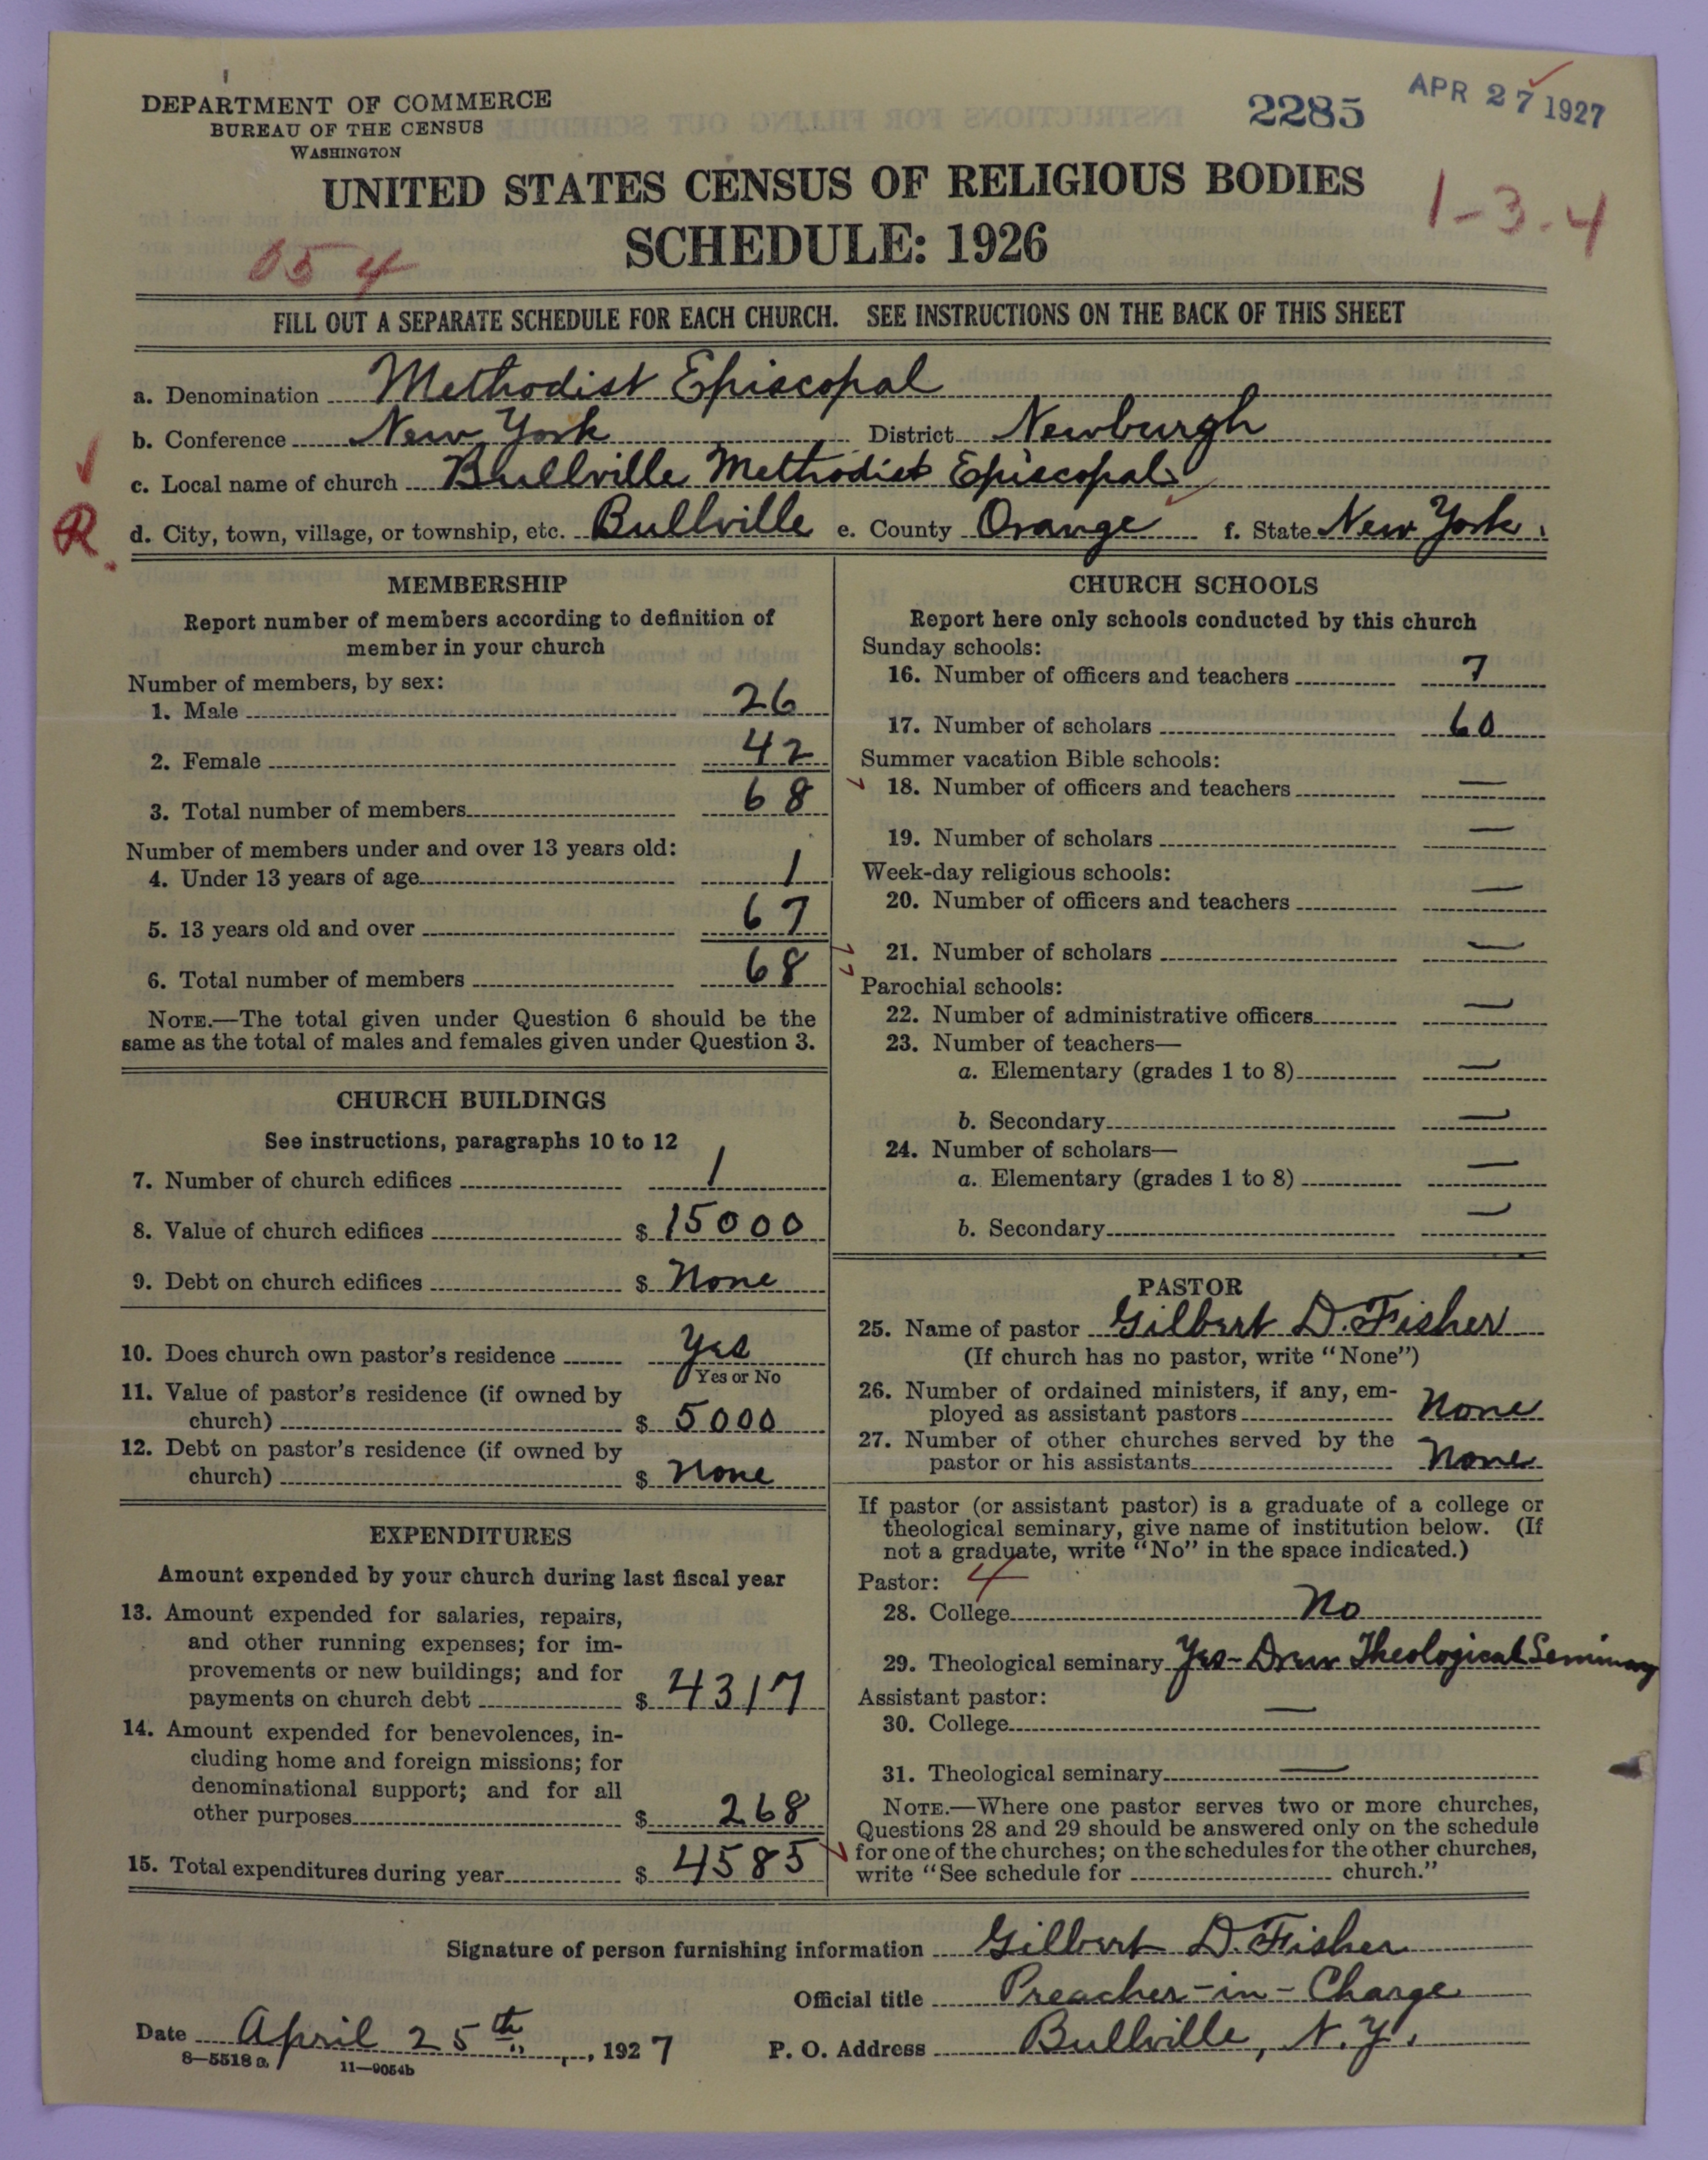 DEPARTMENT OF COMMERCE
BUREAU OF THE CENSUS
WASHINGTON
2285
APR 27 1927
UNITED STATES CENSUS OF RELIGIOUS BODIES
SCHEDULE: 1926
1-3-4
054
FILL OUT A SEPARATE SCHEDULE FOR EACH CHURCH. SEE INSTRUCTIONS ON THE BACK OF THIS SHEET
a. Denomination Methodist Episcopal
b. Conference New York District Newburgh
c. Local name of church Bullville Methodist Episcopal
R. d. City, town, village, or township, etc. Bullville e. County Orange f. State New York.
MEMBERSHIP
Report number of members according to definition of
member in your church
Number of members, by sex:
1. Male 26
2. Female 42
3. Total number of members 68
Number of members under and over 13 years old:
4. Under 13 years of age 1
5. 13 years old and over 67
6. Total number of members 68
NOTE.—The total given under Question 6 should be the
same as the total of males and females given under Question 3.
CHURCH BUILDINGS
See instructions, paragraphs 10 to 12
7. Number of church edifices 1
8. Value of church edifices $ 15000
9. Debt on church edifices $ None
10. Does church own pastor's residence Yes
Yes or No
11. Value of pastor's residence (if owned by
church) $ 5000
12. Debt on pastor's residence (if owned by
church) $ None
EXPENDITURES
Amount expended by your church during last fiscal year
13. Amount expended for salaries, repairs,
and other running expenses; for im-
provements or new buildings; and for
payments on church debt $ 4317
14. Amount expended for benevolences, in-
cluding home and foreign missions; for
denominational support; and for all
other purposes $ 268
15. Total expenditures during year $ 4585
CHURCH SCHOOLS
Report here only schools conducted by this church
Sunday schools:
16. Number of officers and teachers 7
17. Number of scholars 60
Summer vacation Bible schools:
18. Number of officers and teachers —
19. Number of scholars —
Week-day religious schools:
20. Number of officers and teachers —
21. Number of scholars —
Parochial schools:
22. Number of administrative officers —
23. Number of teachers—
a. Elementary (grades 1 to 8) —
b. Secondary —
24. Number of scholars—
a. Elementary (grades 1 to 8) —
b. Secondary —
PASTOR
25. Name of pastor Gilbert D. Fisher
(If church has no pastor, write "None")
26. Number of ordained ministers, if any, em-
ployed as assistant pastors None
27. Number of other churches served by the
pastor or his assistants None
If pastor (or assistant pastor) is a graduate of a college or
theological seminary, give name of institution below. (If
not a graduate, write "No" in the space indicated.)
Pastor: 4
28. College No
29. Theological seminary Yes - Drew Theological Seminary
Assistant pastor:
30. College —
31. Theological seminary —
NOTE.—Where one pastor serves two or more churches,
Questions 28 and 29 should be answered only on the schedule
for one of the churches; on the schedules for the other churches,
write "See schedule for church."
Signature of person furnishing information Gilbert D. Fisher
Official title Preacher-in-Charge
Date April 25th, 1927 P. O. Address Bullville, N.Y.
8—5518a 11—9054b